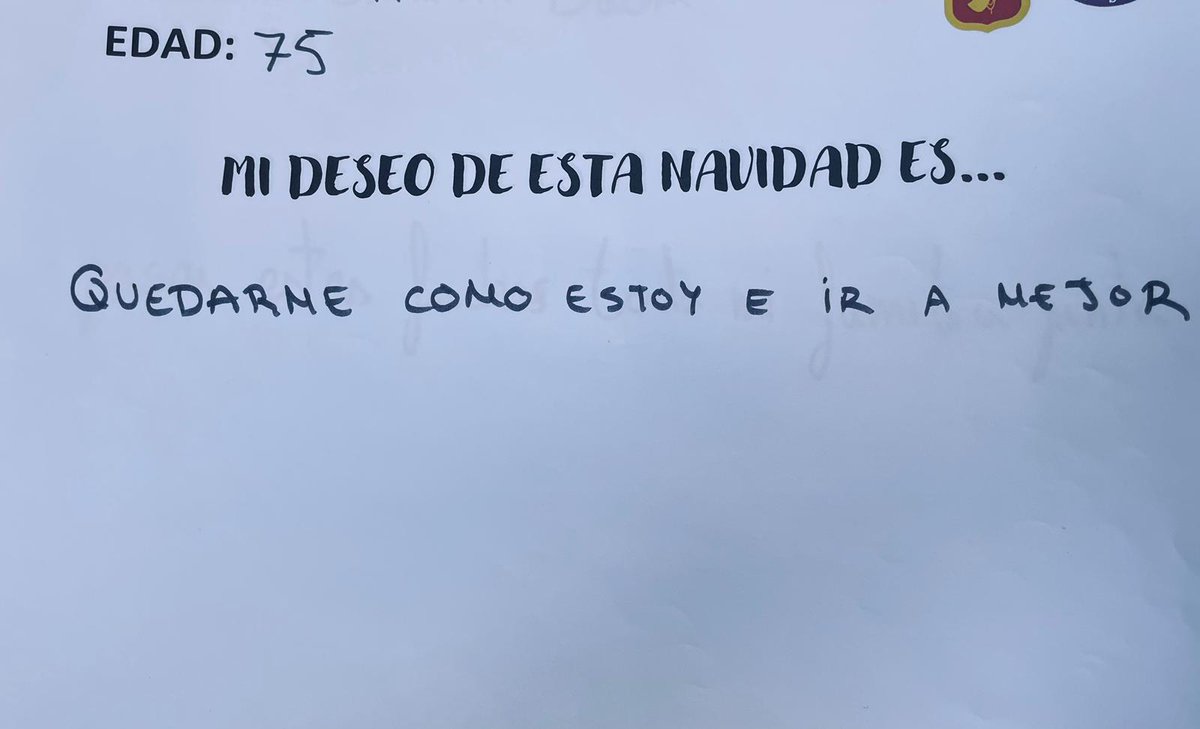 EDAD: 75
MI DESEO DE ESTA NAVIDAD ES...
QUEDARME COMO ESTOY E IR A MEJOR